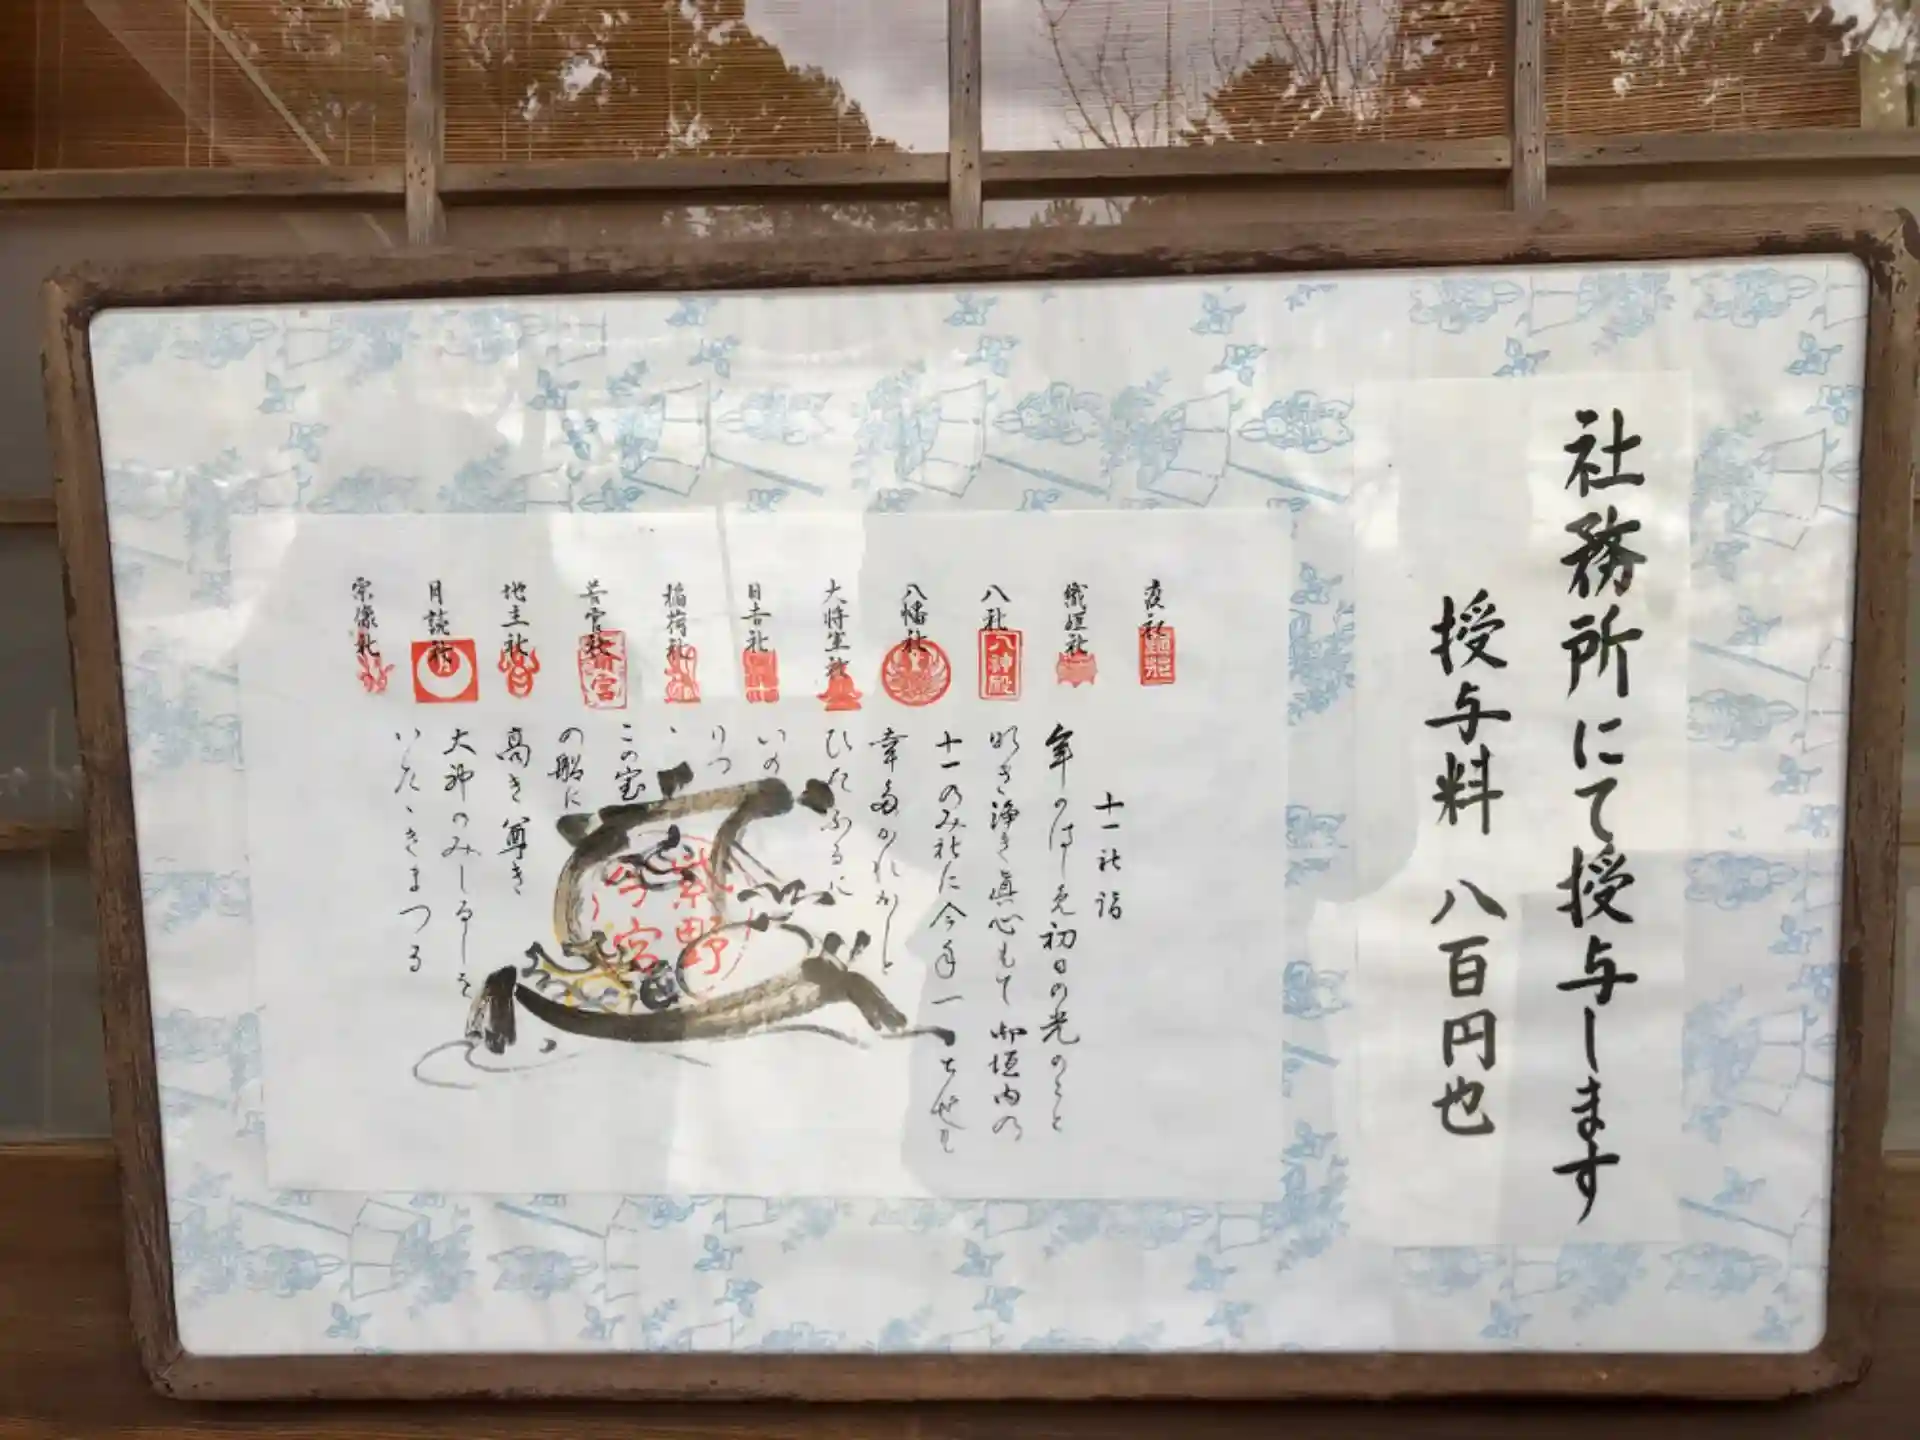 社務所にて授与します
授与料 八百円也
疫社
織姫社
八社
八幡社
大将軍社
日吉社
稲荷社
若宮社
地主社
月読社
宗像社
八神殿
十一社詣
年のはじめ初日の光のごと
明き浄き真心もて御垣内の
十一のみ社に今年一とせも
幸多かれかしと
ひたふるに
いの
りつ
この宝
の船に
高き尊き
大神のみしるしを
いただきまつる
紫野
今宮